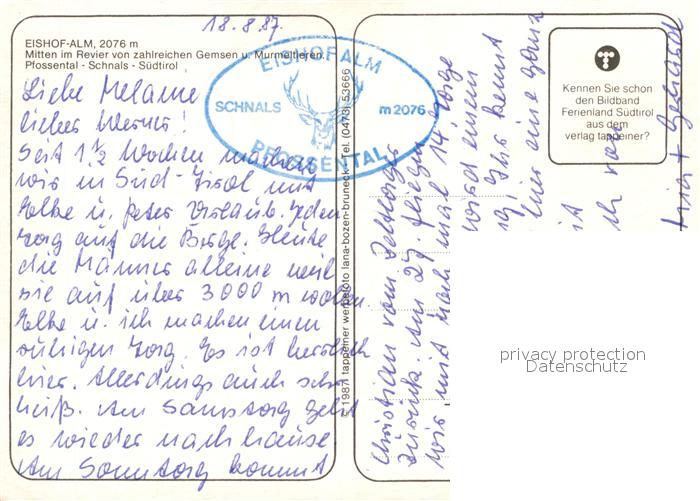 18.8.87.
EISHOF-ALM, 2076 m
Mitten im Revier von zahlreichen Gemsen u. Murmeltieren.
Pfossental - Schnals - Südtirol
EISHOFALM
SCHNALS
m 2076
PFOSSENTAL
Liebe Melanie
lieber Werner!
Seit 1 1/2 Wochen machen
wir in Süd-Tirol mit
Elke u. Peter Urlaub. Jeden
Tag auf die Berge. Heute
die Männer alleine weil
sie auf über 3000 m wollen.
Elke u. ich machen einen
ruhigen Tag. Es ist herrlich
hier. Allerdings auch sehr
heiß. Am Samstag geht
es wieder nach hause
Am Sonntag kommt
Christian vom Zeltlager
zurück. Am 27. fliegen
wir mit noch mal 14 Tage
wird einem
ja Ihr kennt
hier eine ganz
ist
Ihr
u. Gerhard
© 1987 tappeiner werbefoto lana-bozen-bruneck - Tel. (0473) 53666
Kennen Sie schon
den Bildband
Ferienland Südtirol
aus dem
verlag tappeiner?
privacy protection
Datenschutz